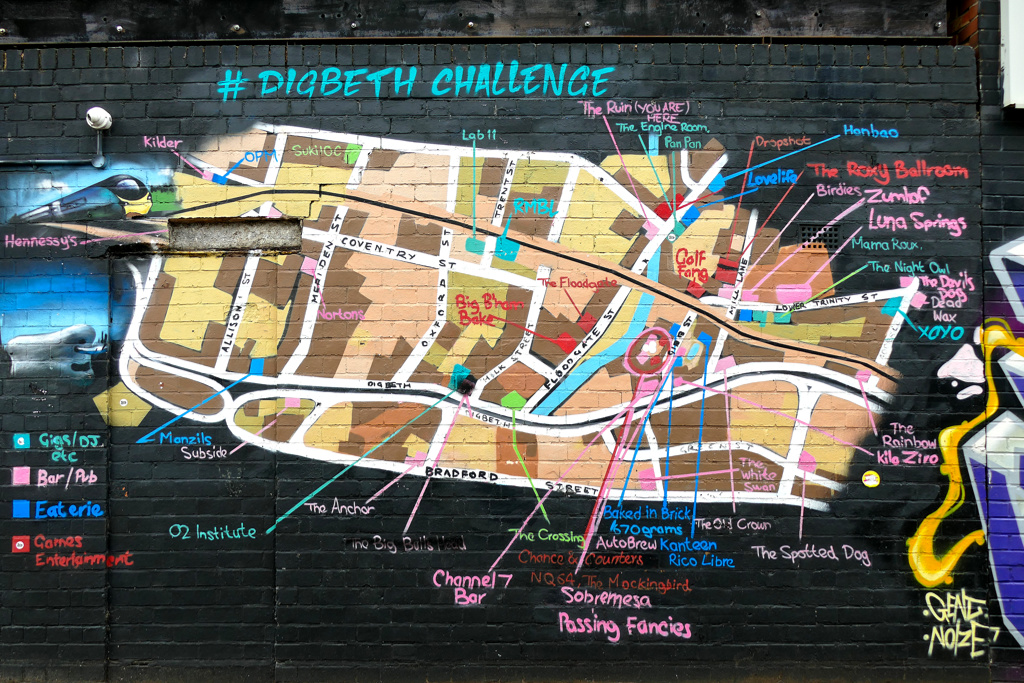 # DIGBETH CHALLENGE
The Ruin (YOU ARE)
HERE
The Engine Room.
Pan Pan
Lab 11
Kilder
OPM
Suki10C
Dropshot
Hanbao
Lovelife
The Roxy Ballroom
Birdies
Zumhof
Luna Springs
Mama Roux.
The Night Owl
The Devils
Dogs
Dead
Wax
XOYO
Hennessy's
TRENT ST
RMBL
COVENTRY
MERIDEN ST
ALLISON ST
OXFORD ST
Nortons
Golf
Fang
The Floodgate
Big B'ham
Bake
MILK STREET
FLOODGATE ST
GIBB ST
MILL LANE
LOWER TRINITY ST
DIGBETH
DIGBETH
GREEN ST
BRADFORD
STREET
Manzils
Subside
The
Rainbow
Kilo Ziro
The
White
Swan
Gigs/DJ.
etc
Bar/Pub
Eaterie
Games
Entertainment
O2 Institute
The Anchor
Big Bulls Head
The Crossing
Baked in Brick
670grams
The Old Crown
AutoBrew
Kanteen
Rico Libre
The Spotted Dog
Chance & Counters
NQ64, The Mockingbird
Channel 7
Bar
Sobremesa
Passing Fancies
GENT
NOIZE